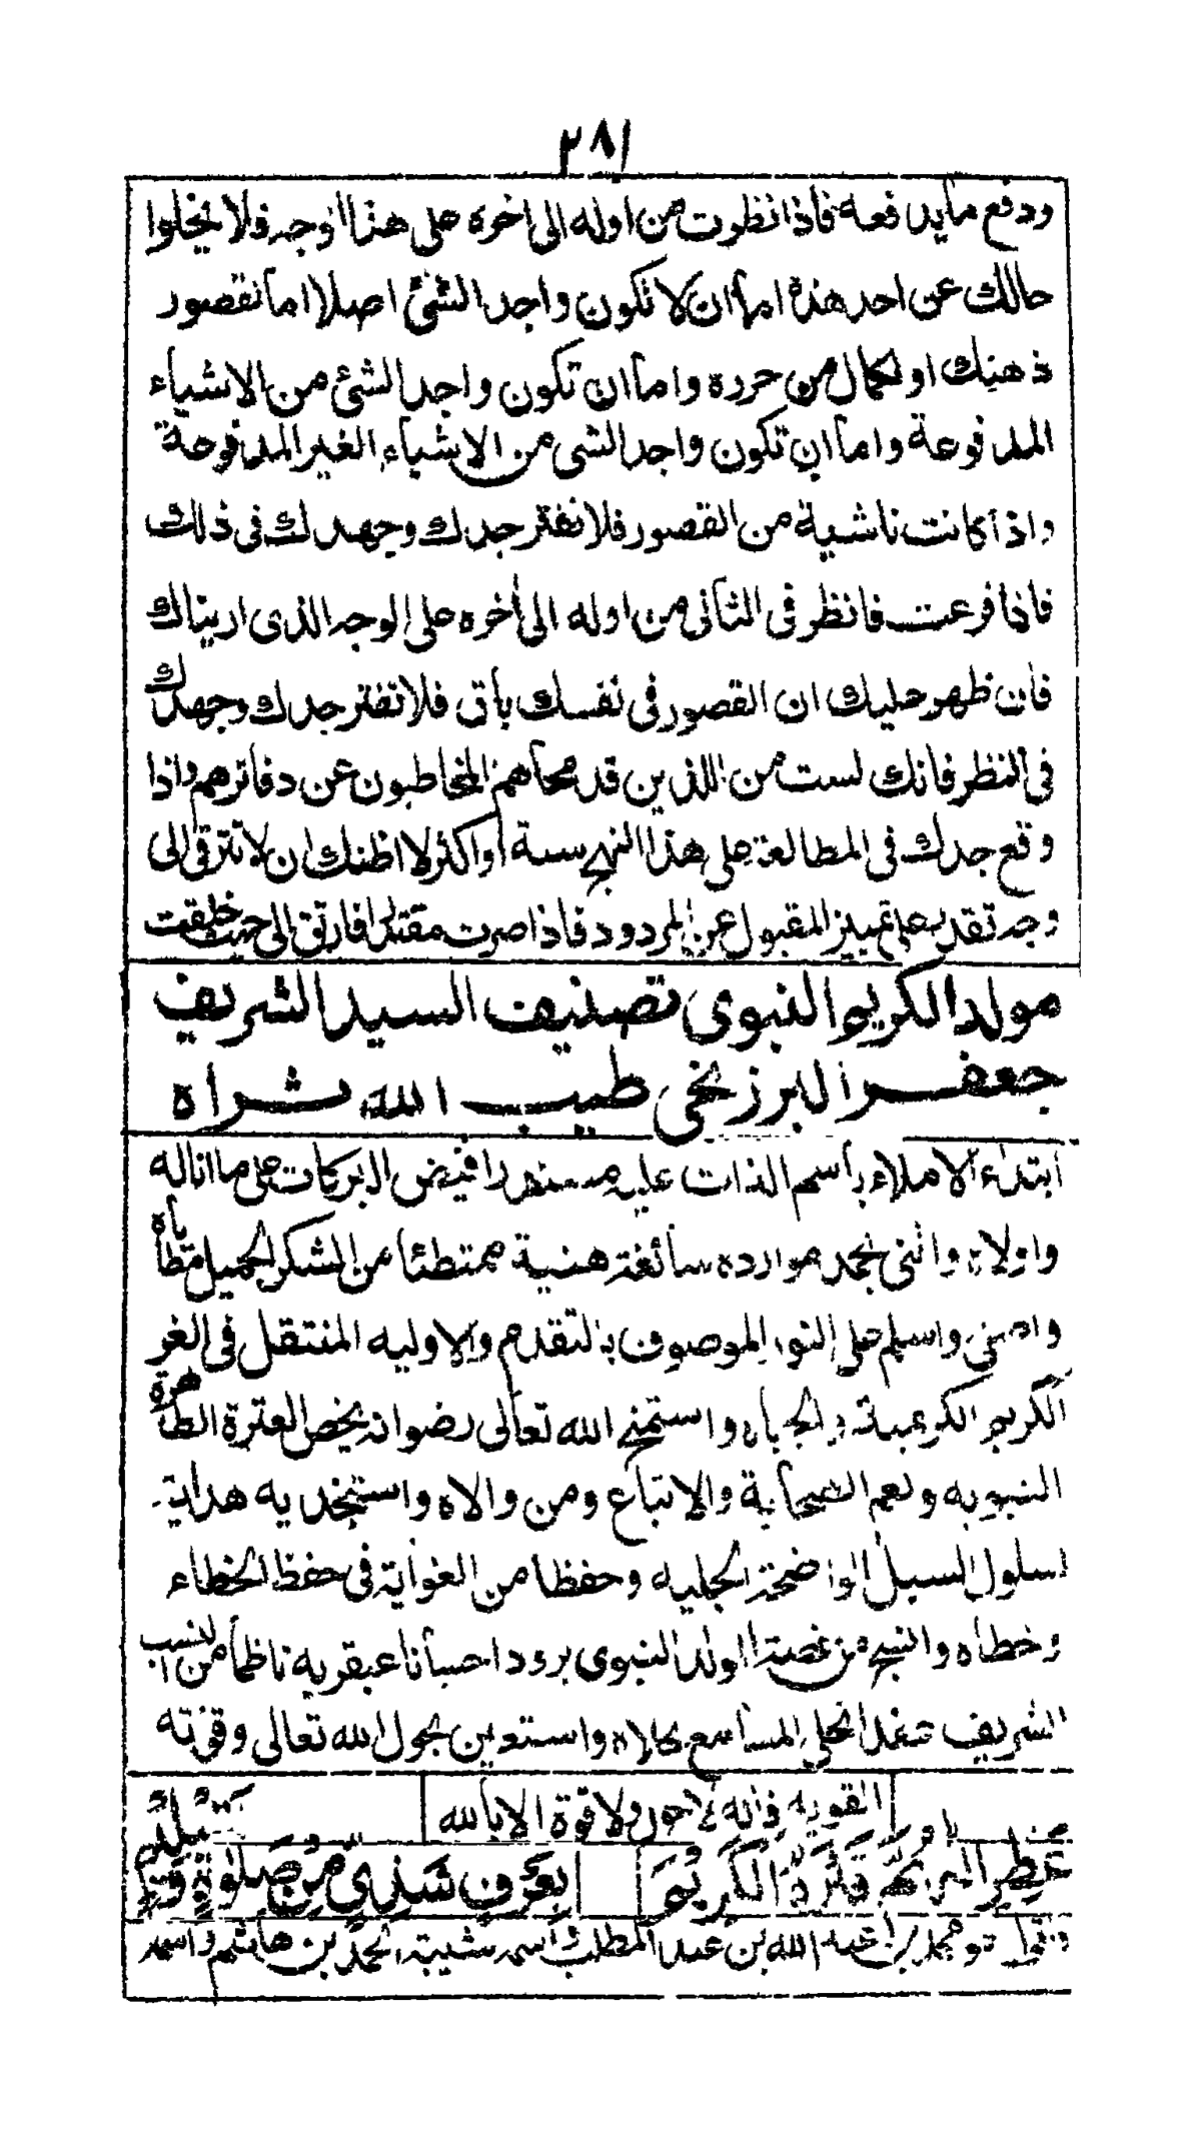 ٢٨١
ودفع ما يدافعه فاذا نظرت من اوله الى اخره على هذا الوجه فلا يخلوا
حالك عن احد هذه اما ان لا تكون واجد الشئ اصلا اما لقصور
ذهنك او لكمال من حرره واما ان تكون واجد الشئ من الاشياء
المدفوعة واما ان تكون واجد الشى من الاشياء الغير المدفوعة
واذا كانت ناشية من القصور فلا تفتر جدك وجهدك فى ذلك
فاذا فرعت فانظر فى الثانى من اوله الى أخره على الوجه الذى اريناك
فان ظهر عليك ان القصور فى نفسك باق فلا تفتر جدك وجهدك
فى النظر فانك لست من اللذين قد محاهم المخاطبون عن دفاترهم واذا
وقع جدك فى المطالعة على هذا النهج سنة أو اكثر لا اظنك ان لا تترقى الى
وجه تقدر به على تمييز المقبول عن المردود فاذا صرت مقتدرا فارتق الى حيث خلقت
مولد الكريم النبوى تصنيف السيد الشريف
جعفر البرزنجى طيب الله ثراه
ابتداء الاملاء باسم الذات عليه مستدرا فيض البركات على ما اناله
واولاه واثنى بحمد موارده سائغة هنية ممتطئا من الشكر الجميل مطاياه
واصلى واسلم على النور الموصوف بالتقدم والاوليه المنتقل فى الغرر
الكريمة والجباه واستمنح الله تعالى رضوانه يخص العترة الطاهرة
النبويه ونعم الصحابة والاتباع ومن والاه واستجديه هداية
لسلوك السبل الواضحة الجليه وحفظا من الغواية فى حفظ الخطاء
وخطاه والنسج من قصة المولد النبوى برودا حسانا عبقريه ناظما من النسب
الشريف عقدا تحلى المسامع بحلاه واستعين بحول الله تعالى وقوته
القويه فانه لا حول ولا قوة الا بالله
عَطِّرِ اللهم قَبْرَهُ الكَرِيْمَ بِعَرْفٍ شَذِىٍّ مِنْ صَلٰوةٍ وَتَسْلِيْمٍ
فاقول هو محمد بن عبد الله بن عبد المطلب واسمه شيبة الحمد بن هاشم واسمه